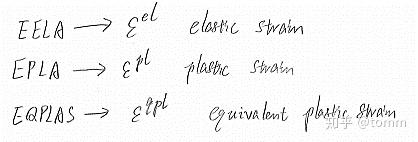 EELA → ε^el elastic strain
EPLA → ε^pl plastic strain
EQPLAS → ε^qpl equivalent plastic strain
知乎 @tomm